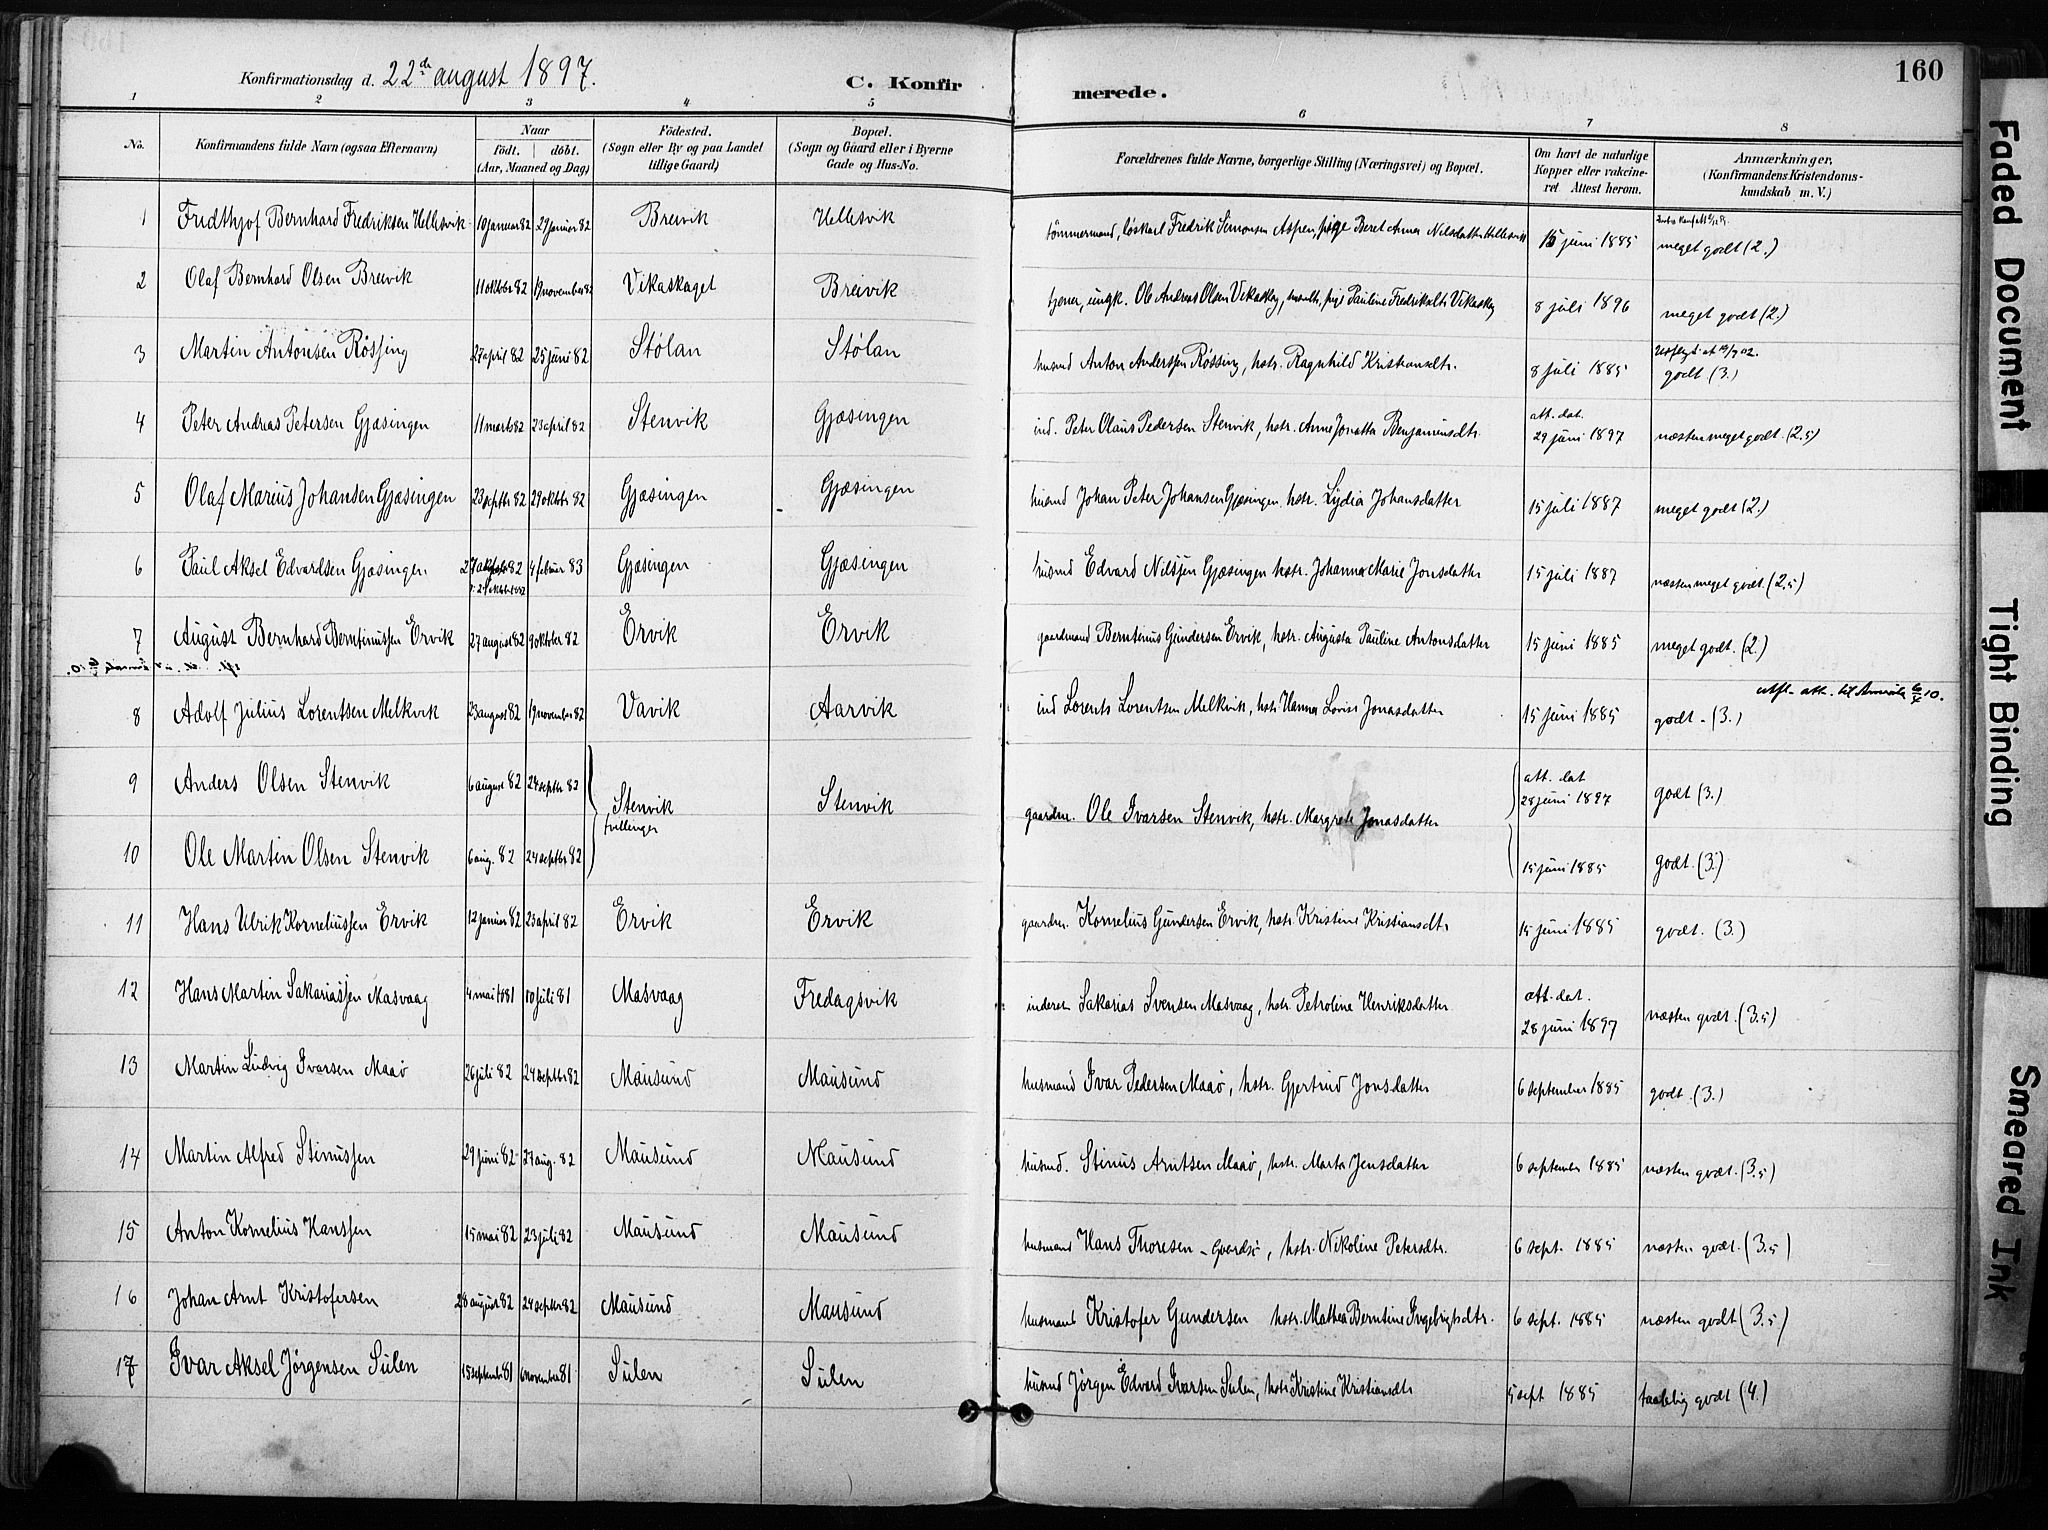 160
Konfirmationsdag d. 22de august 1897. C. Konfirmerede.
1 2 3 4 5 6 7 8
No. Konfirmandens fulde Navn (ogsaa Efternavn) Naar födt. döbt. (Aar, Maaned og Dag) Födested. (Sogn eller By og paa Landet tillige Gaard) Bopæl. (Sogn og Gaard eller i Byerne Gade og Hus-No. Forældrenes fulde Navne, borgerlige Stilling (Næringsvei) og Bopæl. Om havt de naturlige Kopper eller vaccineret Attest herom. Anmærkninger, (Konfirmandens Kristendomskundskab m. V.)
1 Fridthjof Bernhard Fredriksen Hellesvik 10 januar 82 29 januar 82 Breivik Hellesvik tömmermand, löskarl Fredrik Simonsen Aspen, pige Beret Anna Nilsdatter Hellesvik 15 juni 1885 meget godt (2.)
2 Olaf Bernhard Olsen Breivik 11 oktbr 82 19 november 82 Vikaskaget Breivik tjener, ungk. Ole Andreas Olsen Vikaskag, pige Pauline Fredriksdtr Vikaskag 8 juli 1896 meget godt (2.)
3 Martin Antonsen Róssing 27 april 82 25 juni 82 Stólan Stólan husmd Anton Anderssen Róssing, hstr. Ragnhild Kristiansdtr. 8 juli 1885 godt. (3.)
4 Peter Andreas Petersen Gjæsingen 11 marts 82 23 april 82 Stenvik Gjæsingen ind. Peter Olaus Pedersen Stenvik, hstr. Anne Jonetta Benjaminsdtr. att. dat. 29 juni 1897 næsten meget godt. (2.5)
5 Olaf Marius Johansen Gjæsingen 23 septbr 82 29 oktbr 82 Gjæsingen Gjæsingen husmd Johan Peter Johansen Gjæsingen, hstr. Lydia Johansdatter 15 juli 1887 meget godt (2.)
6 Paul Aksel Edvardsen Gjæsingen 27 oktobr 82 4 februar 83 Gjæsingen Gjæsingen husmd Edvard Nilssen Gjæsingen hstr. Johanna Marie Jonsdatter 15 juli 1887 næsten meget godt. (2.5)
7 August Bernhard Berntinussen Ervik 27 august 82 9 oktober 82 Ervik Ervik gaardmand Berntinus Gundersen Ervik, hstr. Augusta Pauline Antonsdatter 15 juni 1885 meget godt. (2.)
utfl. att. til Amerika 10.
8 Adolf Julius Lorentsen Melkvik 23 august 82 19 november 82 Vavik Aarvik ind Lorents Lorentsen Melkvik, hstr Hanna Lovise Jonasdatter 15 juni 1885 godt. (3.)
9 Anders Olsen Stenvik 6 august 82 24 septbr 82 Stenvik tvillinger Stenvik gaardm. Ole Ivarsen Stenvik, hstr. Margrete Jonasdatter att. dat 28 juni 1897 godt (3.)
10 Ole Martin Olsen Stenvik 6 aug. 82 24 septbr 82 15 juni 1885 godt. (3.)
11 Hans Ulrik Korneliussen Ervik 12 januar 82 23 april 82 Ervik Ervik gaardm. Kornelius Gundersen Ervik, hstr. Kristine Kristiansdtr 15 juni 1885 godt. (3.)
12 Hans Martin Sakariassen Masvaag 4 mai 1881 10 juli 81 Masvaag Fredagsvik inderst Sakarias Svensen Masvaag, hstr. Petroline Henriksdatter att. dat. 28 juni 1897 næsten godt. (3.5)
13 Martin Ludvig Ivarsen Maaó 26 juli 82 24 septbr 82 Mausund Mausund husmand Ivar Pedersen Maaó, hstr. Gjertrud Jonsdatter 6 september 1885 godt. (3.)
14 Martin Alfred Stinussen 29 juni 82 27 aug. 82 Mausund Mausund husmd. Stinus Arntsen Maaó, hstr. Marta Jensdatter 6 september 1885 næsten godt. (3.5)
15 Anton Kornelius Hanssen 15 mai 82 23 juli 82 Mausund Mausund husmand Hans Thoresen, hstr. Nikoline Petersdtr. 6 sept. 1885 næsten godt. (3.5)
16 Johan Arnt Kristofersen 28 august 82 24 septbr 82 Mausund Mausund husmand Kristofer Gundersen hstr. Mathea Berntine Ingebrigtsdtr. 6 sept. 1885 næsten godt (3.5)
17 Ivar Aksel Jörgensen Sulen 15 september 81 6 november 81 Sulen Sulen husmd Jörgen Edvard Ivarsen Sulen, hstr Kristine Kristiansdtr 5 sept 1885 taalelig godt (4.)
Faded Document
Tight Binding
Smeared Ink